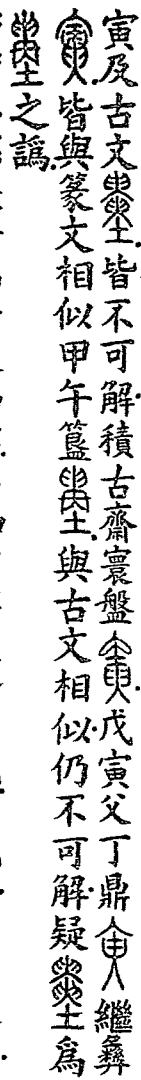 寅及古文皆不可解積古齋寰盤戊寅父丁鼎繼彞
皆與篆文相似甲午簋與古文相似仍不可解疑為
之譌